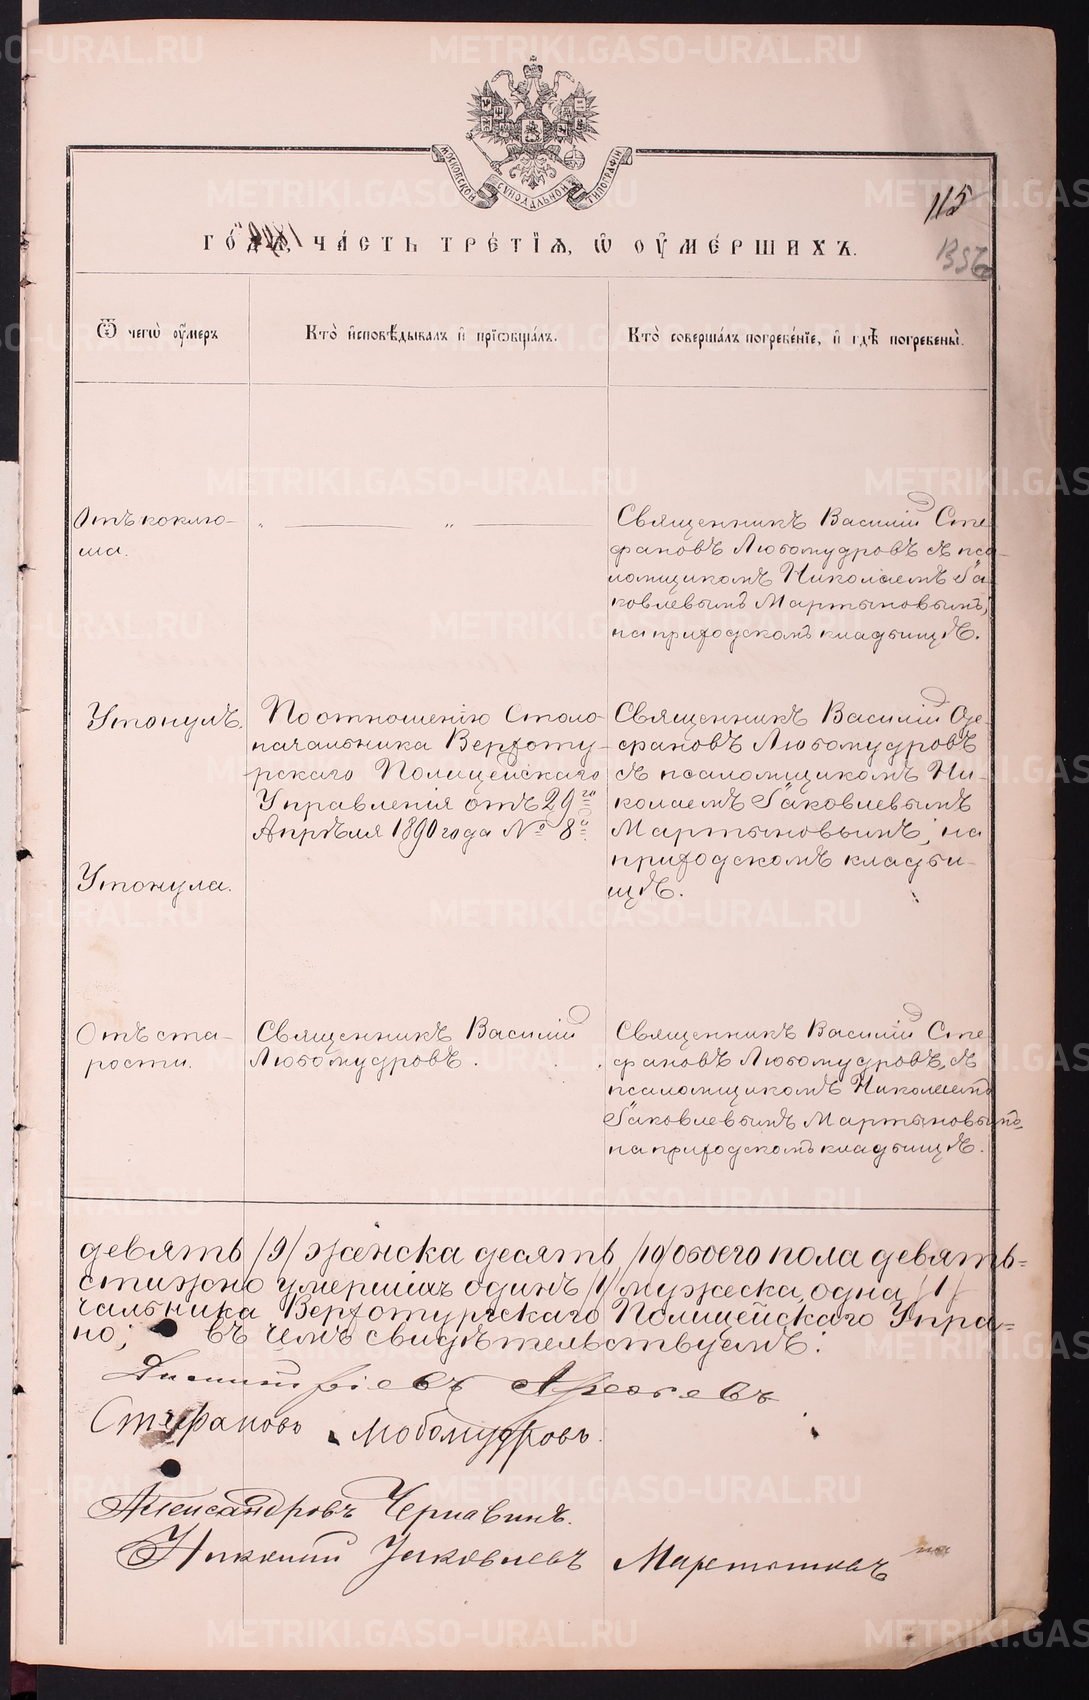 МОСКОВСКОЙ СѴНОДАЛЬНОЙ ТИПОГРАФІИ
115
ГО́ДА, ЧА́СТЬ ТРЕ́ТІѦ, Ѡ҆ ОУ҆МЕ́РШИХЪ.
Ѿ чегѡ̀ оу҆́меръ
Кто̀ и҆сповѣ́дывалъ и҆ прїѡбща́лъ.
Кто̀ соверша́лъ погребе́нїе, и҆ гдѣ̀ погребены̀.
Отъ коклю-
ша.
„ — „ —
Священникъ Василій Сте
фановъ Любомудровъ съ пса-
ломщикомъ Николаемъ Іа
ковлевымъ Мартыновымъ,
на приходскомъ кладбищѣ.
Утонулъ.
По отношенію Столо
начальника Верхоту-
рскаго Полицейскаго
Управленія отъ 29го
Апрѣля 1890 года № 8й
Священникъ Василій Сте
фановъ Любомудровъ
съ псаломщикомъ Ни-
колаемъ Іаковлевымъ
Мартыновымъ, на
приходскомъ кладби-
щѣ.
Утонула.
Отъ ста-
рости.
Священникъ Василій
Любомудровъ.
Священникъ Василій Сте
фановъ Любомудровъ, съ
псаломщикомъ Николаемъ
Іаковлевымъ Мартыновымъ,
на приходскомъ кладбищѣ.
девять /9/ женска десять /10/ обоего пола девять-
стижно умершихъ одинъ /1/ мужеска, одна /1/
чальника Верхотурскаго Полицейскаго Упра-
но; въ чемъ свидѣтельствуемъ:
Димитріевъ Арефьевъ
Стефановъ Любомудровъ.
Александровъ Чернавинъ.
Николай Іаковлевъ Мартыновъ